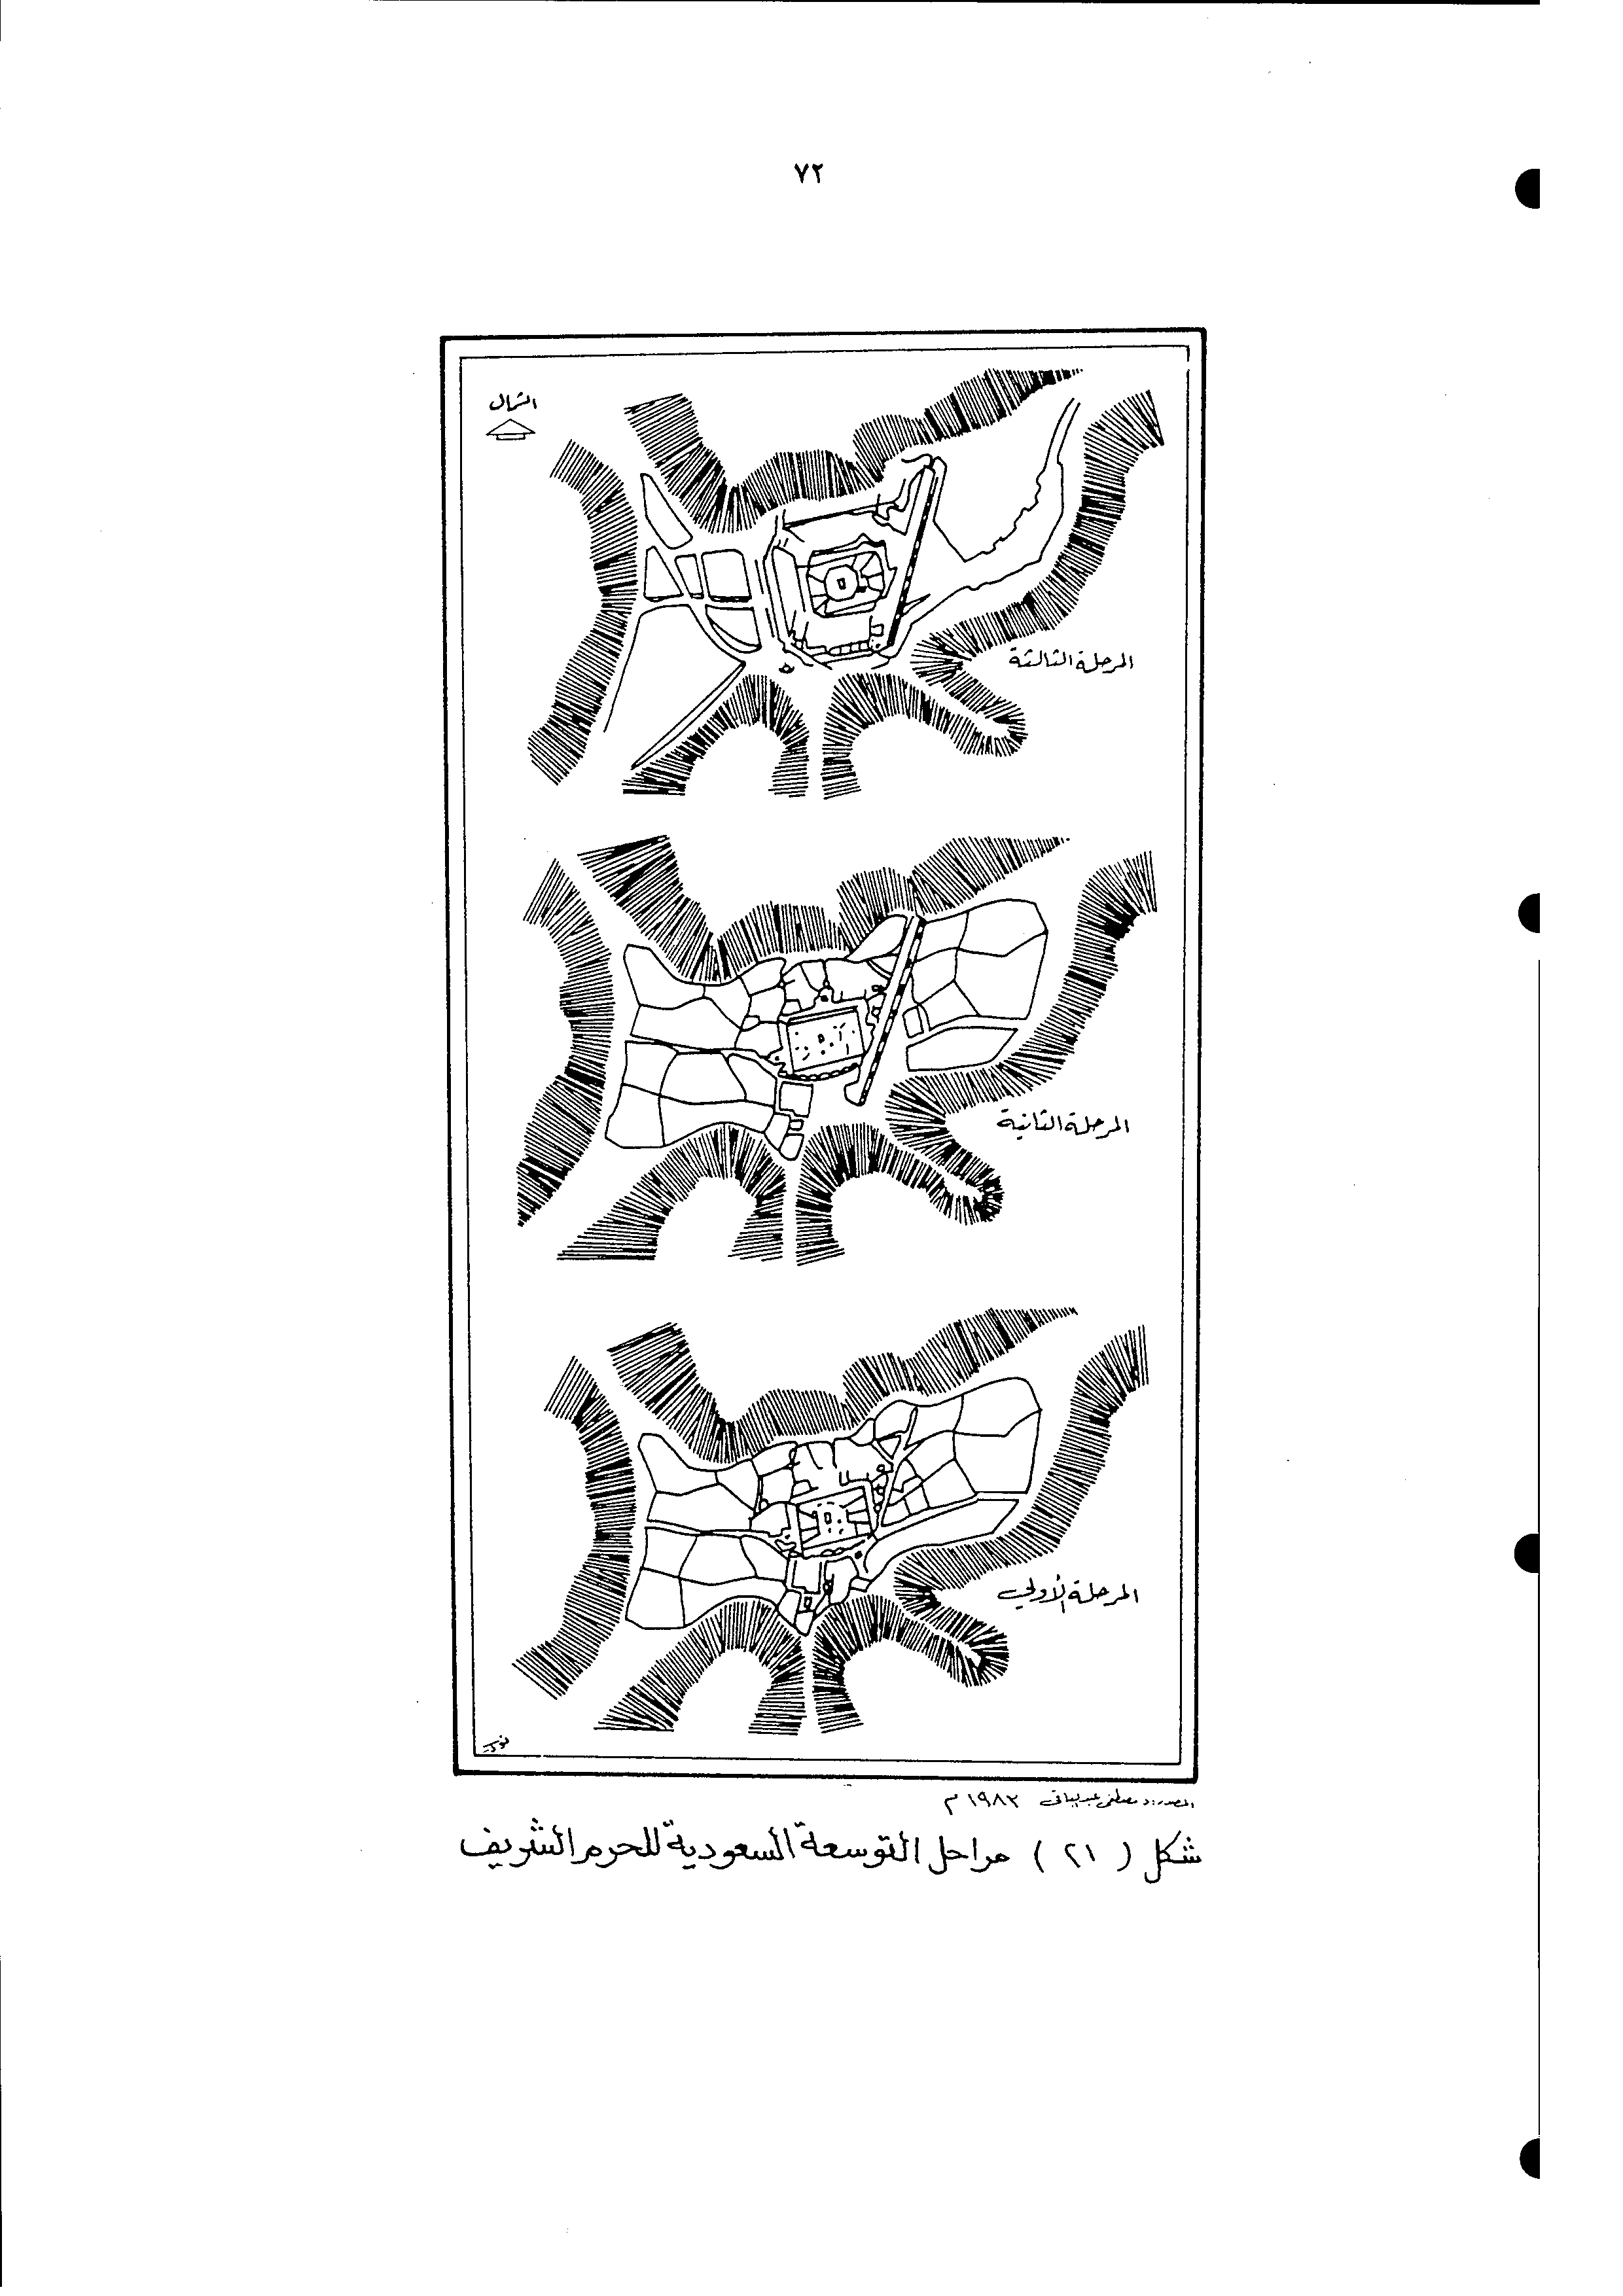 ٧٢
الشمال
المرحلة الثالثة
المرحلة الثانية
المرحلة الأولى
المصدر: د. مصطفى ١٩٨٣م
شكل ( ٢١ ) مراحل التوسعة السعودية للحرم الشريف